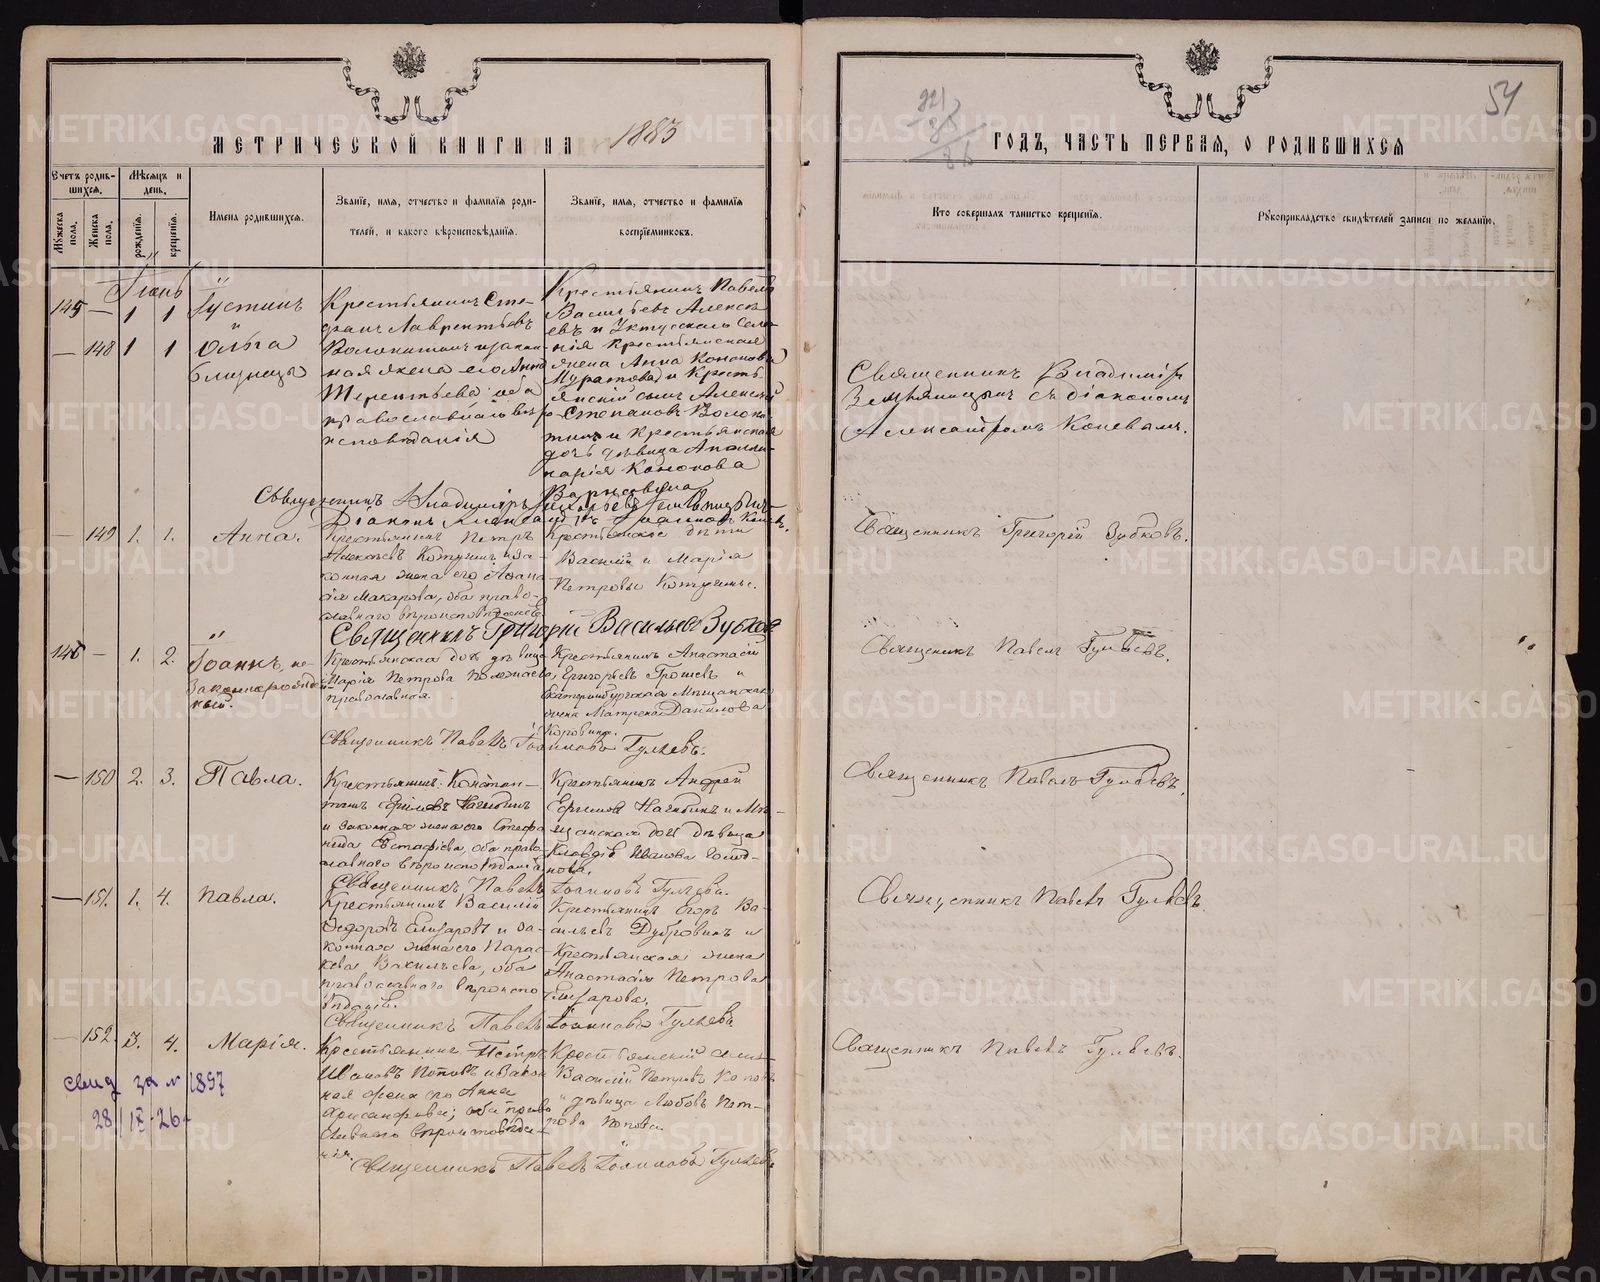 МЕТРИЧЕСКОЙ КНИГИ НА 1883
ГОДЪ, ЧАСТЬ ПЕРВАЯ, О РОДИВШИХСЯ
54
Счетъ родившихся.
Мѣсяцъ и день.
Имена родившихся.
Званіе, имя, отчество и фамилія родителей, и какого вѣроисповѣданія.
Званіе, имя, отчество и фамилія воспріемниковъ.
Кто совершалъ таинство крещенія.
Рукоприкладство свидѣтелей записи по желанію.
Мужеска пола.
Женска пола.
рожденія.
крещенія.
Іюнь
145 — 1 1 Іустинъ
— 148 1 1 Ольга
близнецы
Крестьянинъ Сте-
фанъ Лаврентьевъ
Волокитинъ и закон-
ная жена его Анна
Терентьева, оба
православнаго вѣро-
исповѣданія
Крестьянинъ Павелъ
Васильевъ Алексѣ-
евъ и Уктусскаго селе-
нія крестьянская
жена Анна Кононова
Муратова и Кресть-
янскій сынъ Алексѣй
Степановъ Волоки-
тинъ и Крестьянская
дочь дѣвица Аполли-
нарія Кононова
Священникъ Владиміръ
Земляницынъ съ діакономъ
Александромъ Коневымъ.
Священникъ Владиміръ
149 1. 1. Анна.
Крестьянинъ Петръ
Алексѣевъ Котугинъ и за-
конная жена его Аѳана-
сія Макарова, оба право-
славнаго вѣроисповѣданія
Крестьянскіе дѣти
Василій и Марія
Петровы Котугины.
Священникъ Григорій Зубковъ.
Священникъ Григорій Васильевъ Зубковъ
146 — 1. 2. Іоаннъ, не-
законнорожден-
ный.
Крестьянская дочь дѣвица
Марія Петрова
православная.
Крестьянинъ Анастасій
Григорьевъ Грошевъ и
Екатеринбургская Мѣщанская
жена Матрена Данилова
Коровина.
Священникъ Павелъ Гуляевъ.
Священникъ Павелъ Іоанновъ Гуляевъ.
— 150 2. 3. Павла.
Крестьянинъ Констан-
тинъ Ефимовъ Нагибинъ
и законная жена его Стефа-
нида Евстафіева, оба право-
славнаго вѣроисповѣданія
Крестьянинъ Андрей
Ефимовъ Нагибинъ и Мѣ-
щанская дочь дѣвица
Клавдія Иванова
Священникъ Павелъ Гуляевъ.
Священникъ Павелъ Іоанновъ Гуляевъ.
— 151. 1. 4. Павла.
Крестьянинъ Василій
Ѳедоровъ Елизаровъ и за-
конная жена его Парас-
кева Васильева, оба
православнаго вѣроиспо-
вѣданій.
Крестьянинъ Егоръ Ва-
сильевъ Дубровинъ и
Крестьянская жена
Анастасія Петрова
Елизарова.
Священникъ Павелъ Гуляевъ.
Священникъ Павелъ Іоанновъ Гуляевъ
— 152. 3. 4. Марія.
Крестьянинъ Петръ
Ивановъ Поповъ и закон
ная жена его Анна
Хрисанфова; оба право
славнаго вѣроисповѣда-
нія.
Крестьянскій сынъ
Василій Петровъ Поповъ
и дѣвица Любовь Пет-
рова Попова.
Священникъ Павелъ Гуляевъ.
свид за № 1897
28/IX-26
Священникъ Павелъ Іоанновъ Гуляевъ
METRIKI.GASO-URAL.RU